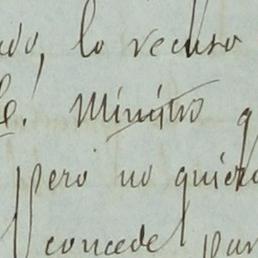 ado, lo recuso
é! Ministro q
pero no quiere
conceder par